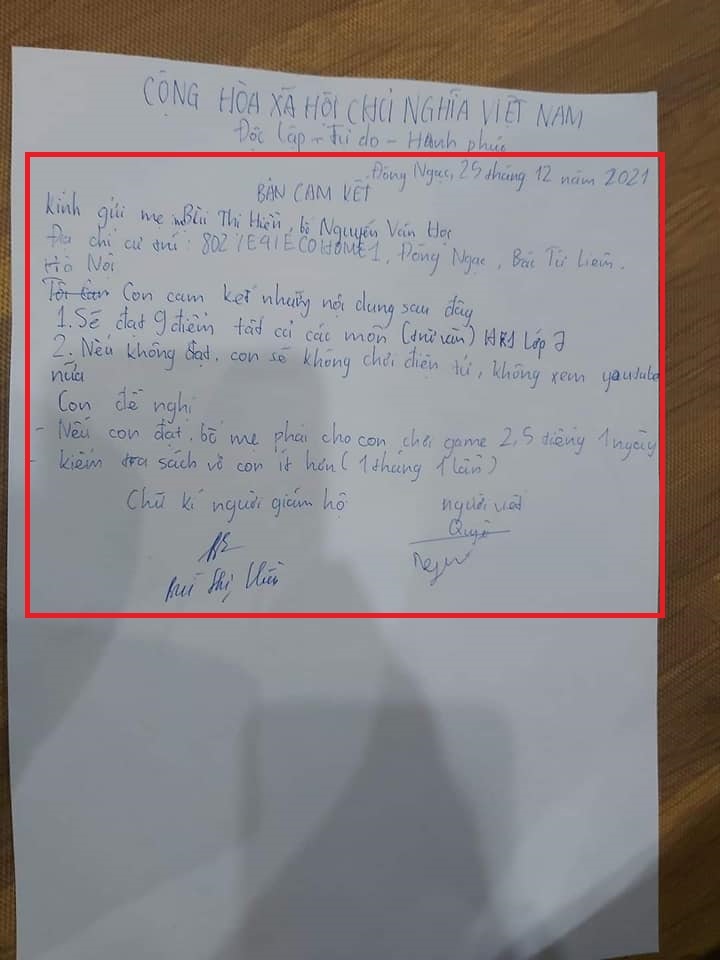 CỘNG HÒA XÃ HỘI CHỦ NGHĨA VIỆT NAM
Độc lập - Tự do - Hạnh phúc
Đông Ngạc, 25 tháng 12 năm 2021
BẢN CAM KẾT
Kính gửi mẹ Bùi Thị Hiền, bố Nguyễn Văn Học
Địa chỉ cư trú: 802 / E4 / ECOHOME1, Đông Ngạc, Bắc Từ Liêm.
Hà Nội
Con cam kết những nội dung sau đây
1. Sẽ đạt 9 điểm tất cả các môn (trừ văn) HK1 Lớp 7
2. Nếu không đạt, con sẽ không chơi điện tử, không xem youtube
nữa
Con đề nghị
- Nếu con đạt, bố mẹ phải cho con chơi game 2,5 tiếng 1 ngày
- kiểm tra sách vở con ít hơn (1 tháng 1 lần)
Chữ kí người giám hộ
người viết
Bùi Thị Hiền